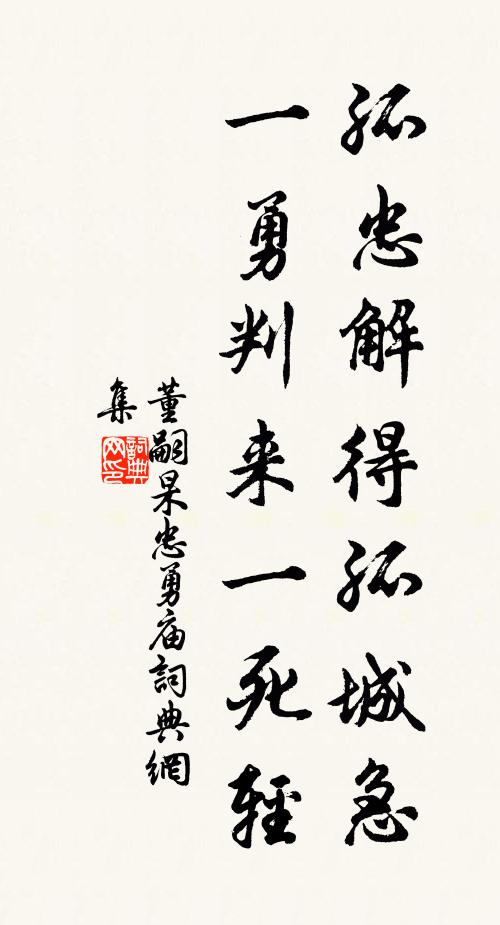 孤忠解得孤城急
一勇判来一死輕
董嗣杲忠勇庙詞典網
集
詞典网印